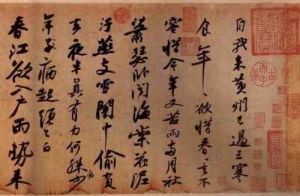 自我來黃州已過三寒
食年〻欲惜春春去不
容惜今年又苦雨兩月秋
蕭瑟臥聞海棠花泥
汙燕支雪闇中偷負
去夜半真有力何殊少
年子病起頭已白
春江欲入戶雨勢來